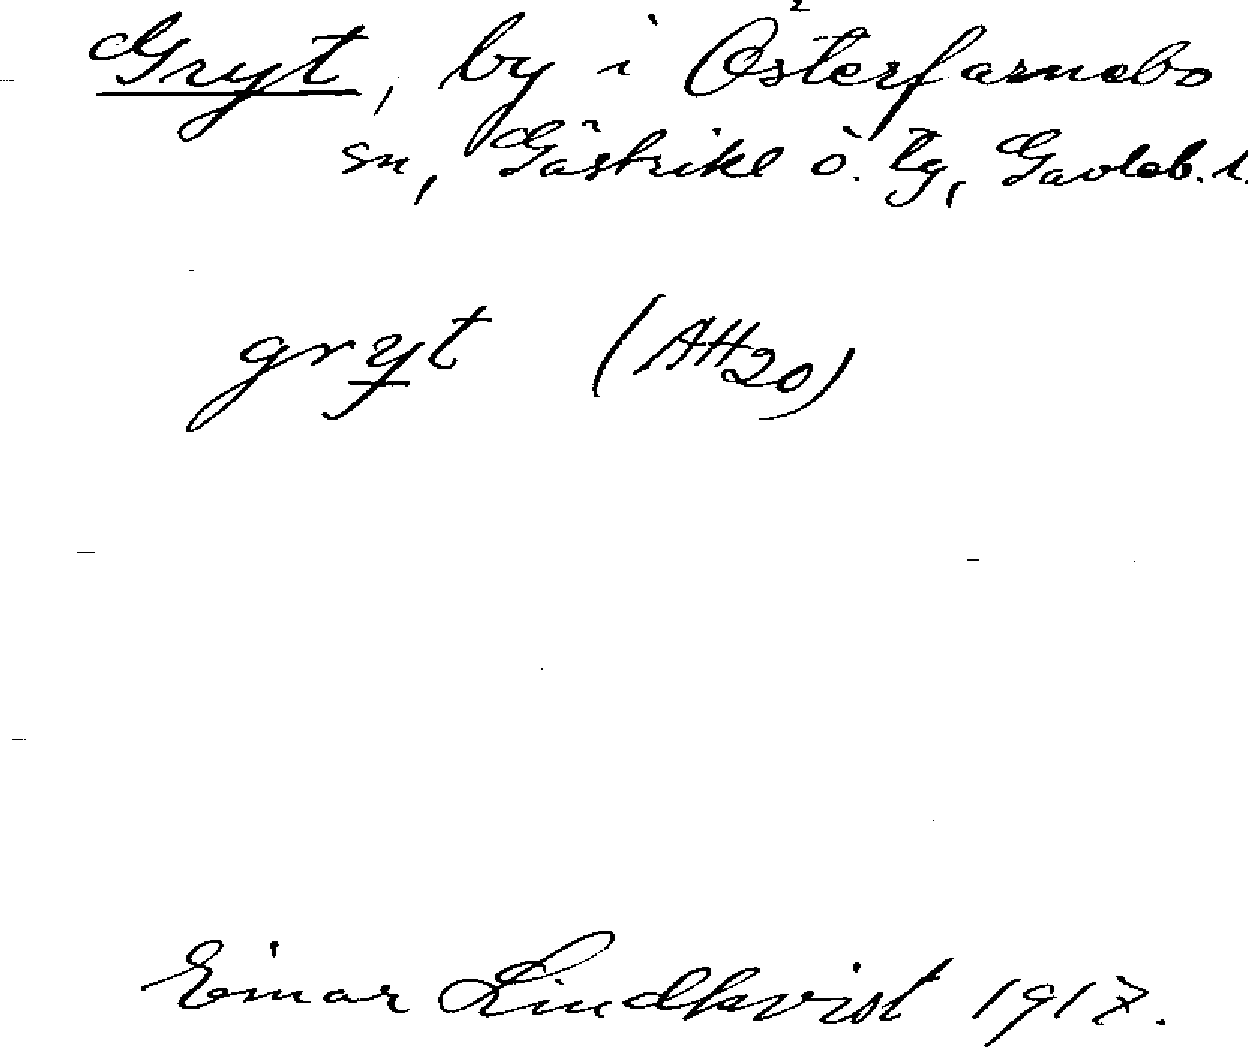 Gryt, by i Österfärnebo
sn, Gästrikl ö. tg, Gävleb. l.
gryt (AH20)
Einar Lindkvist 1917.